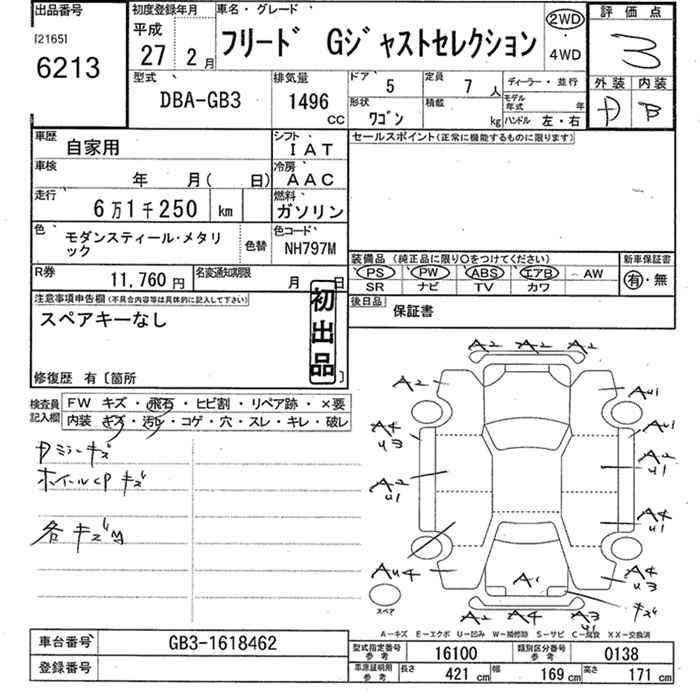 出品番号
[2165]
6213
初度登録年月
平成
27 2月
車名・グレード
フリード Gジャストセレクション
2WD
・
4WD
評価点
3
外装 内装
D B
型式
DBA-GB3
排気量
1496
CC
ドア
5
定員
7 人
形状
ワゴン
積載
kg
ディーラー・並行
モデル年式 年
ハンドル 左・右
車歴
自家用
シフト
IAT
車検
年 月( 日)
冷房
AAC
走行
6万1千250 km
燃料
ガソリン
色
モダンスティール・メタリック
色替
色コード
NH797M
R券
11,760 円
名変通知期限
月 日
セールスポイント(正常に機能するものに限ります)
装備品 (純正品に限り○をつけてください)
PS PW ABS エアB AW
SR ナビ TV カワ
新車保証書
有・無
後日品
保証書
注意事項申告欄(不具合内容等は具体的に記入して下さい)
スペアキーなし
初出品
修復歴 有〔箇所 〕
検査員記入欄
FW キズ・飛石・ヒビ割・リペア跡・×要
内装 キズ・汚れ・コゲ・穴・スレ・キレ・破レ
Dミラーキズ
ホイールCPキズ
各キズ
A2 A2 A2
A2 AU1
A4 U3 AU1
A2 U1 A2 U1
A4 U1
AU4 A1 A2 U3
スペア
キズ
A2 A4 A3 U1
A-キズ E-エクボ U-凹み W-補修跡 S-サビ C-腐食 XX-交換済
車台番号
GB3-1618462
登録番号
型式指定番号 参考
16100
類別区分番号 参考
0138
車庫証明用 参考
長さ 421 cm 幅 169 cm 高さ 171 cm